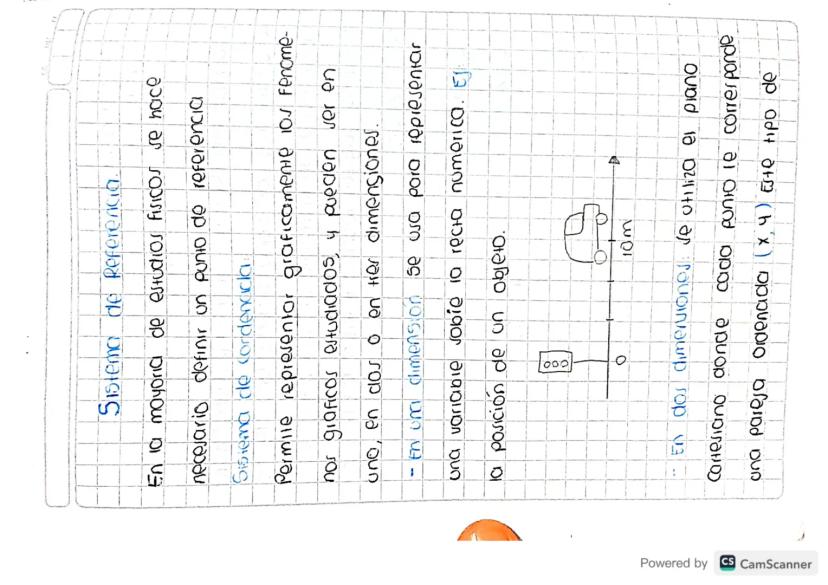 Sistema de Referencia.
En la mayoria de estudios fisicos se hace
necesario definir un punto de referencia
Sistema de cordenada
Permite representar graficamente los fenome-
nos graficos estudiados, y pueden ser en
una, en dos o en tres dimensiones.
- En una dimensión se usa para representar
una variable sobre la recta numerica. Ej
la posición de un objeto.
0
10m
- En dos dimensiones: se utiliza el plano
Cartesiano donde cada punto le corresponde
una pareja ordenada (x, y) Este tipo de
Powered by CS CamScanner